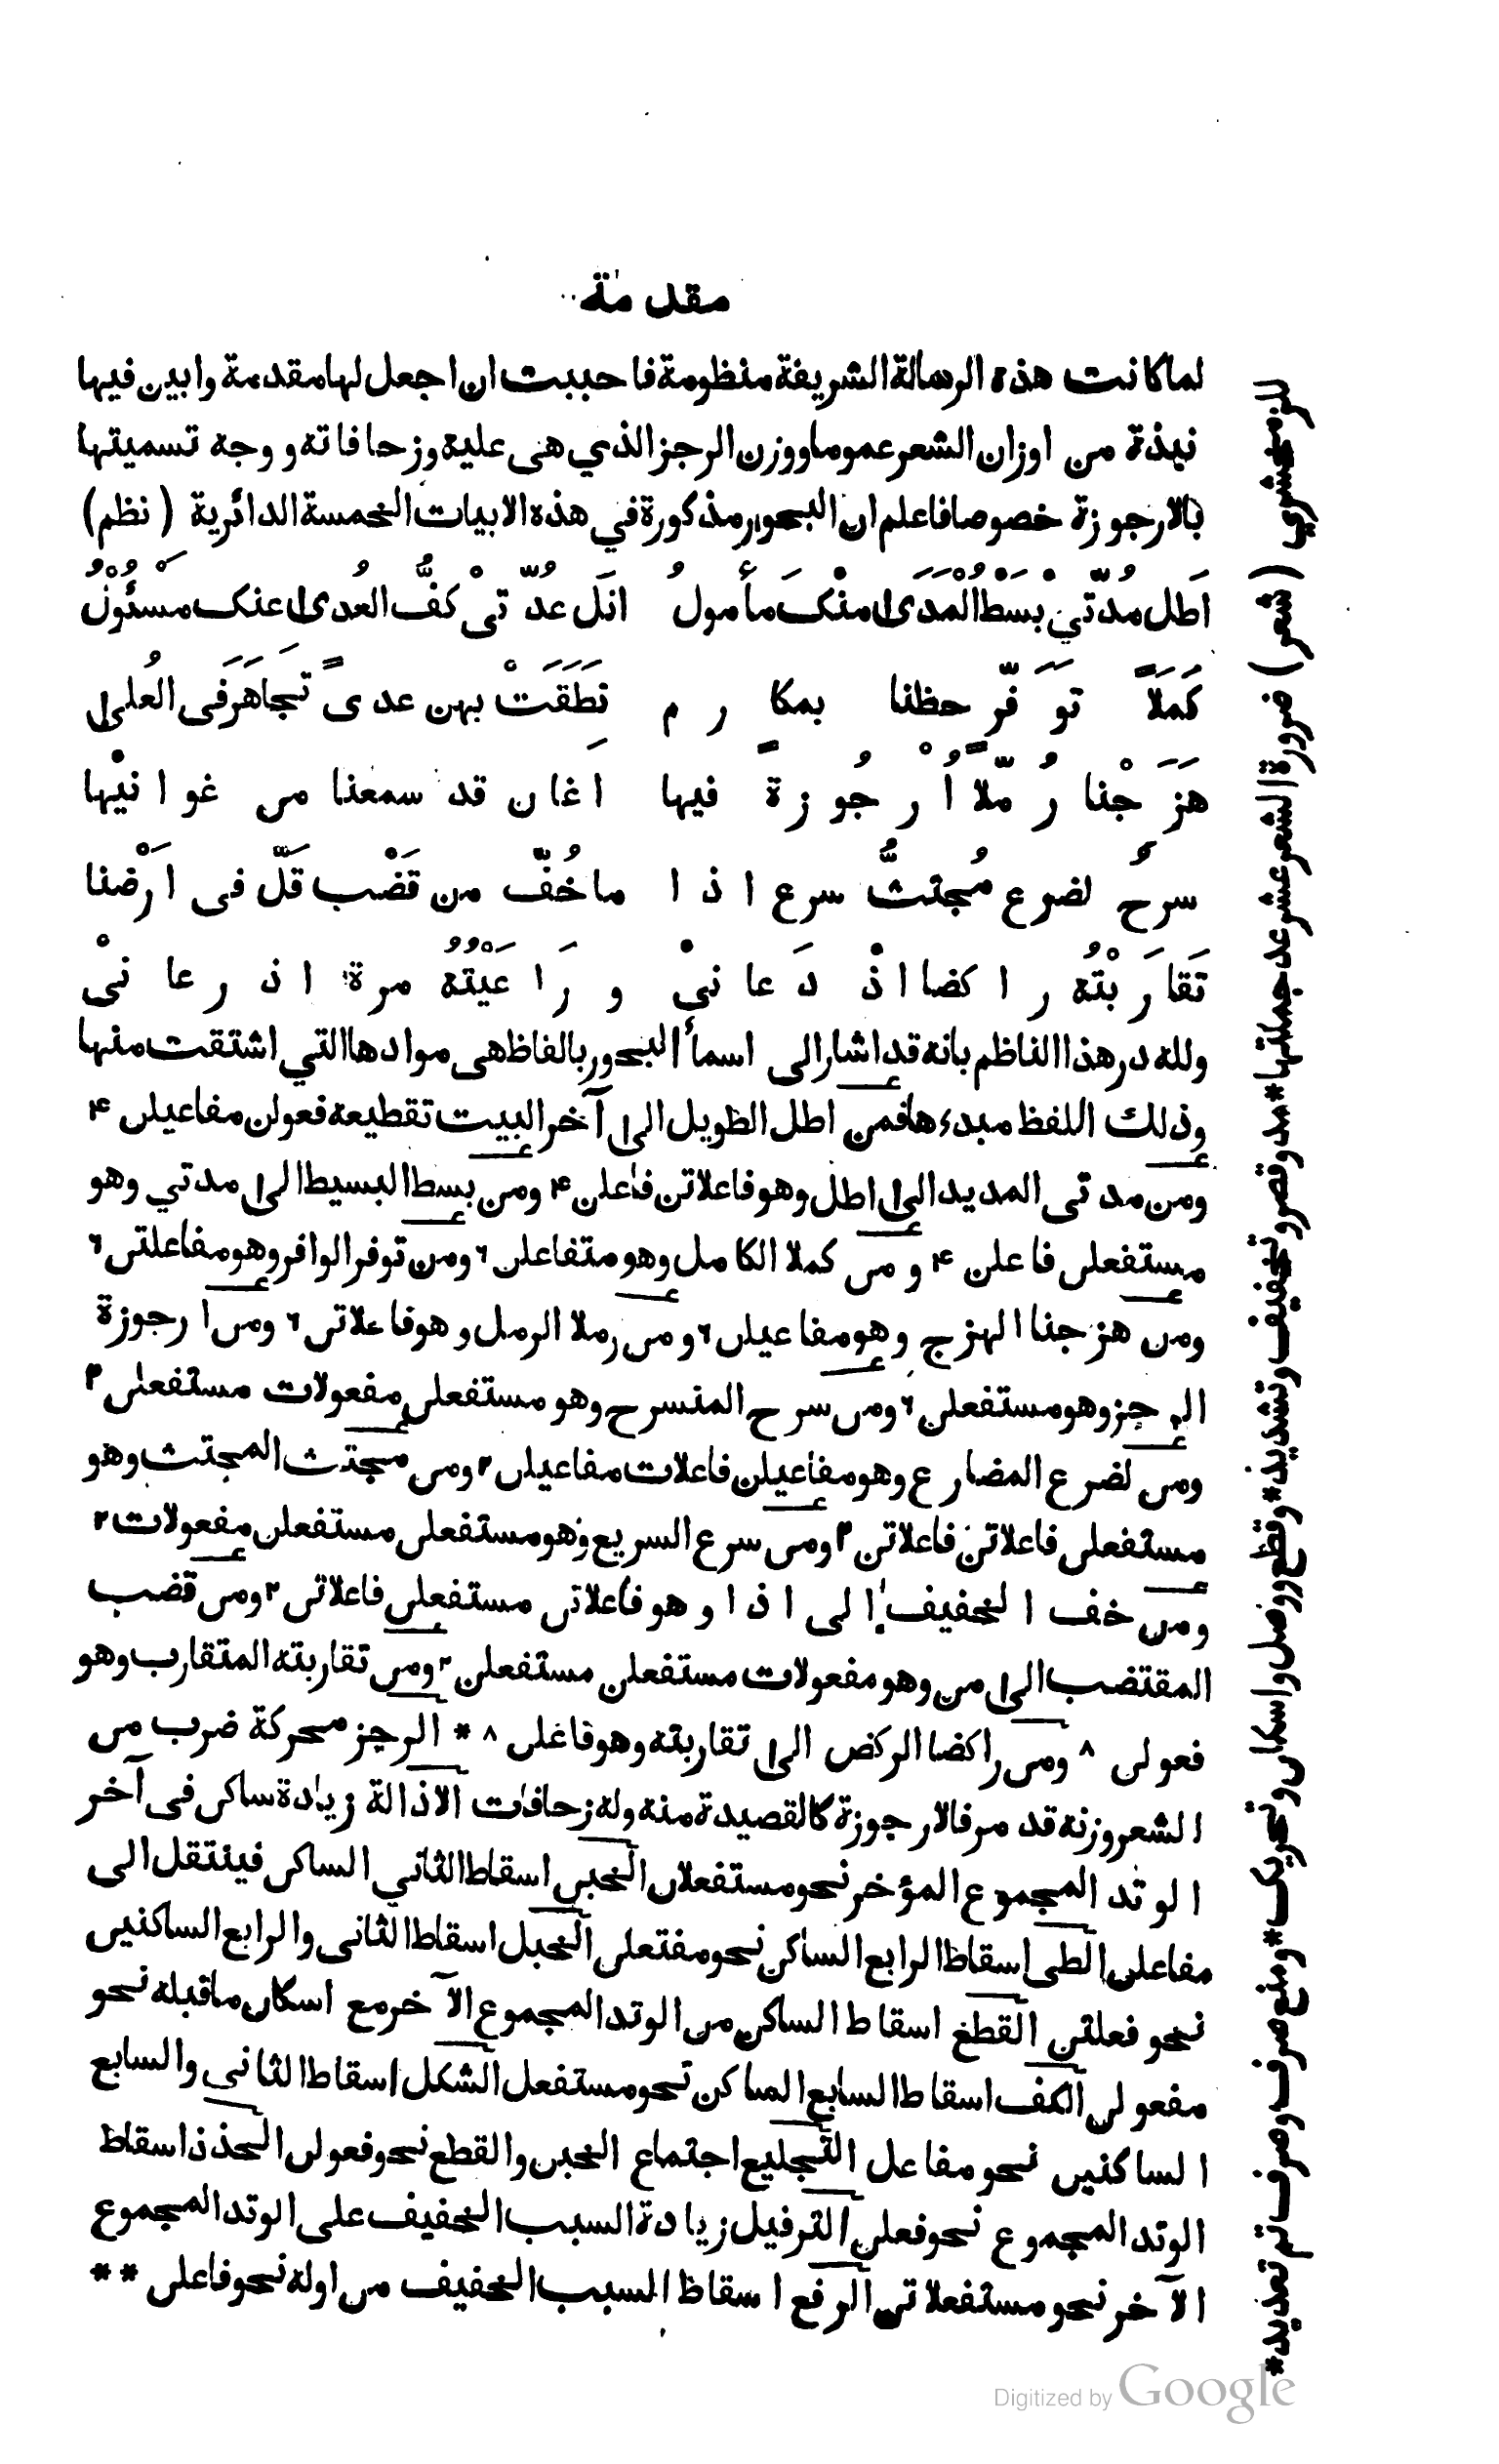 مقدمة
لما كانت هذه الرسالة الشريفة منظومة فاحببت ان اجعل لها مقدمة وابين فيها
نبذة من اوزان الشعر عموما ووزن الرجز الذي هى عليه وزحافاته ووجه تسميتها
بالارجوزة خصوصا فاعلم ان البحور مذكورة في هذه الابيات الخمسة الدائرية (نظم)
اَطل مُدّتيْ بسْطُ الْمَدَى منْكَ مأمولُ انَل عُدّتيْ كفُّ العُدى عنك مسئُوْلُ
كَمَلاً تَوَفّر حظنا بمكارم نَطَقَتْ بهن عدىً تَجاهَرَ فى العُلى
هَزَجْنا رُمّلاً اُرْجُوزةً فيها اغان قد سمعنا من غوانيْها
سرحُ لضرع مُجتثُّ سرع اذا ما خُفّ من قَضْب قَلّ فى ارْضنا
تَقارَبْتُهُ راكضا اذْ دَعانيْ ورَاعَيْتُهُ مرة اذ رعانيْ
ولله در هذا الناظم بانه قد اشار الى اسمأ البحور بالفاظ هى موادها التي اشتقت منها
وذلك اللفظ مبدء ها فمن اطل الطويل الى آخر البيت تقطيعه فعولن مفاعيلن ۴
ومن مدتى المديد الى اطل وهو فاعلاتن فاعلن ۴ ومن بسط البسيط الى مدتي وهو
مستفعلن فاعلن ۴ ومن كملا الكامل وهو متفاعلن ٦ ومن توفر الوافر وهو مفاعلتن ٦
ومن هزجنا الهزج وهو مفاعيلن ٦ ومن رملا الرمل وهو فاعلاتن ٦ ومن ارجوزة
الرجز وهو مستفعلن ٦ ومن سرح المنسرح وهو مستفعلن مفعولات مستفعلن ٢
ومن لضرع المضارع وهو مفاعيلن فاعلات مفاعيلن ٢ ومن مجتث المجتث وهو
مستفعلن فاعلاتن فاعلاتن ٢ ومن سرع السريع وهو مستفعلن مستفعلن مفعولات ٢
ومن خف الخفيف الى اذا وهو فاعلاتن مستفعلن فاعلاتن ٢ ومن قضب
المقتضب الى من وهو مفعولات مستفعلن مستفعلن ٢ ومن تقاربته المتقارب وهو
فعولن ٨ ومن راكضا الركض الى تقاربته وهو فاعلن ٨ * الرجز محركة ضرب من
الشعر وزنه قد مر فالارجوزة كالقصيدة منه وله زحافات الاذالة زيادة ساكن فى آخر
الوتد المجموع المؤخر نحو مستفعلان الخبن اسقاط الثاني الساكن فينتقل الى
مفاعلن الطى اسقاط الرابع الساكن نحو مفتعلن الخبل اسقاط الثانى والرابع الساكنين
نحو فعلتن القطع اسقاط الساكن من الوتد المجموع الآخر مع اسكان ما قبله نحو
مفعولن الكف اسقاط السابع الساكن نحو مستفعل الشكل اسقاط الثانى والسابع
الساكنين نحو مفاعل التجليع اجتماع الخبن والقطع نحو فعولن الحذذ اسقاط
الوتد المجموع نحو فعلن الترفيل زيادة السبب الخفيف على الوتد المجموع
الآخر نحو مستفعلاتن الرفع اسقاط السبب الخفيف من اوله نحو فاعلن * *
للزمخشري (شعر) ضرورة الشعر عشر عد جملتها * مد وقصر وتخفيف وتشديد * وقطع ووصل واسكان وتحريك * ومنع صرف وصرف تم تعديد *
Digitized by Google